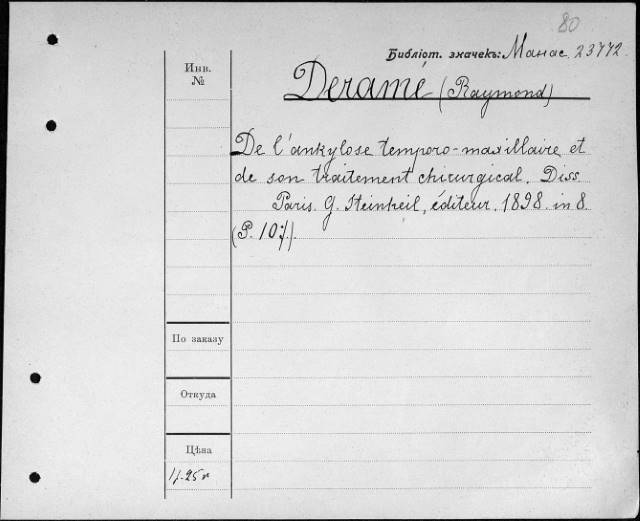 80
Библіот. значекъ: Манас. 23772
Инв.
№
Deramé (Raymond)
De l'ankylose temporo-maxillaire et
de son traitement chirurgical. Diss
Paris. G. Steinheil, éditeur. 1898. in 8.
(P. 107).
По заказу
Откуда
Цѣна